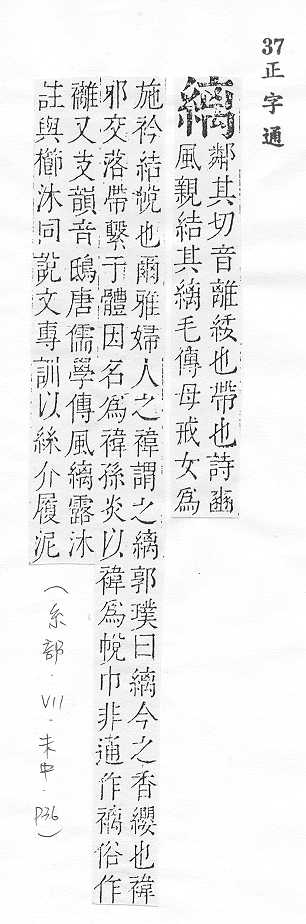 37正字通
縭
鄰其切音離緌也帶也詩豳
風親結其縭毛傳母戒女爲
施衿結帨也爾雅婦人之褘謂之縭郭璞曰縭今之香纓也褘
邪交落帶繫于體因名爲褘孫炎以褘爲帨巾非通作褵俗作
䙰又支韻音鴟唐儒學傳風縭露沐
註與櫛沐同說文專訓以絲介履泥
(糸部.VII.未中.P36)